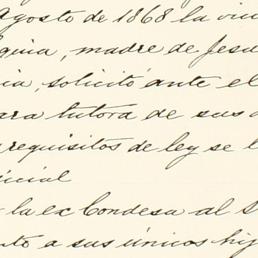 agosto de 1868 la viu
quia, madre de Jesu
ia, solicitó ante el
ara tutora de sus
requisitos de ley se l
icial
la ex Condesa al
a sus únicos hij